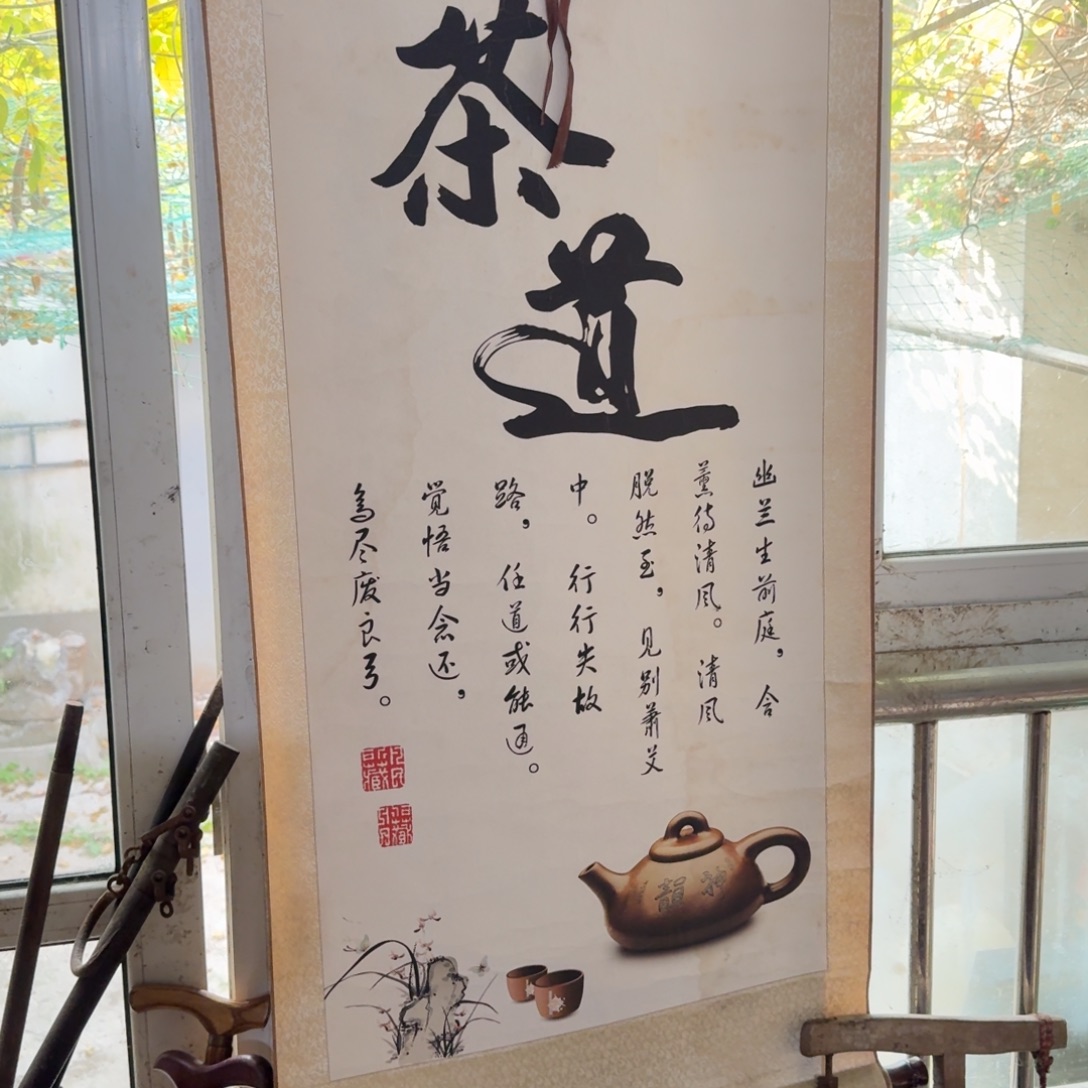 茶道
幽兰生前庭，含
薰待清风。清风
脱然至，见别萧艾
中。行行失故
路，任道或能通。
觉悟当念还，
鸟尽废良弓。
神韵